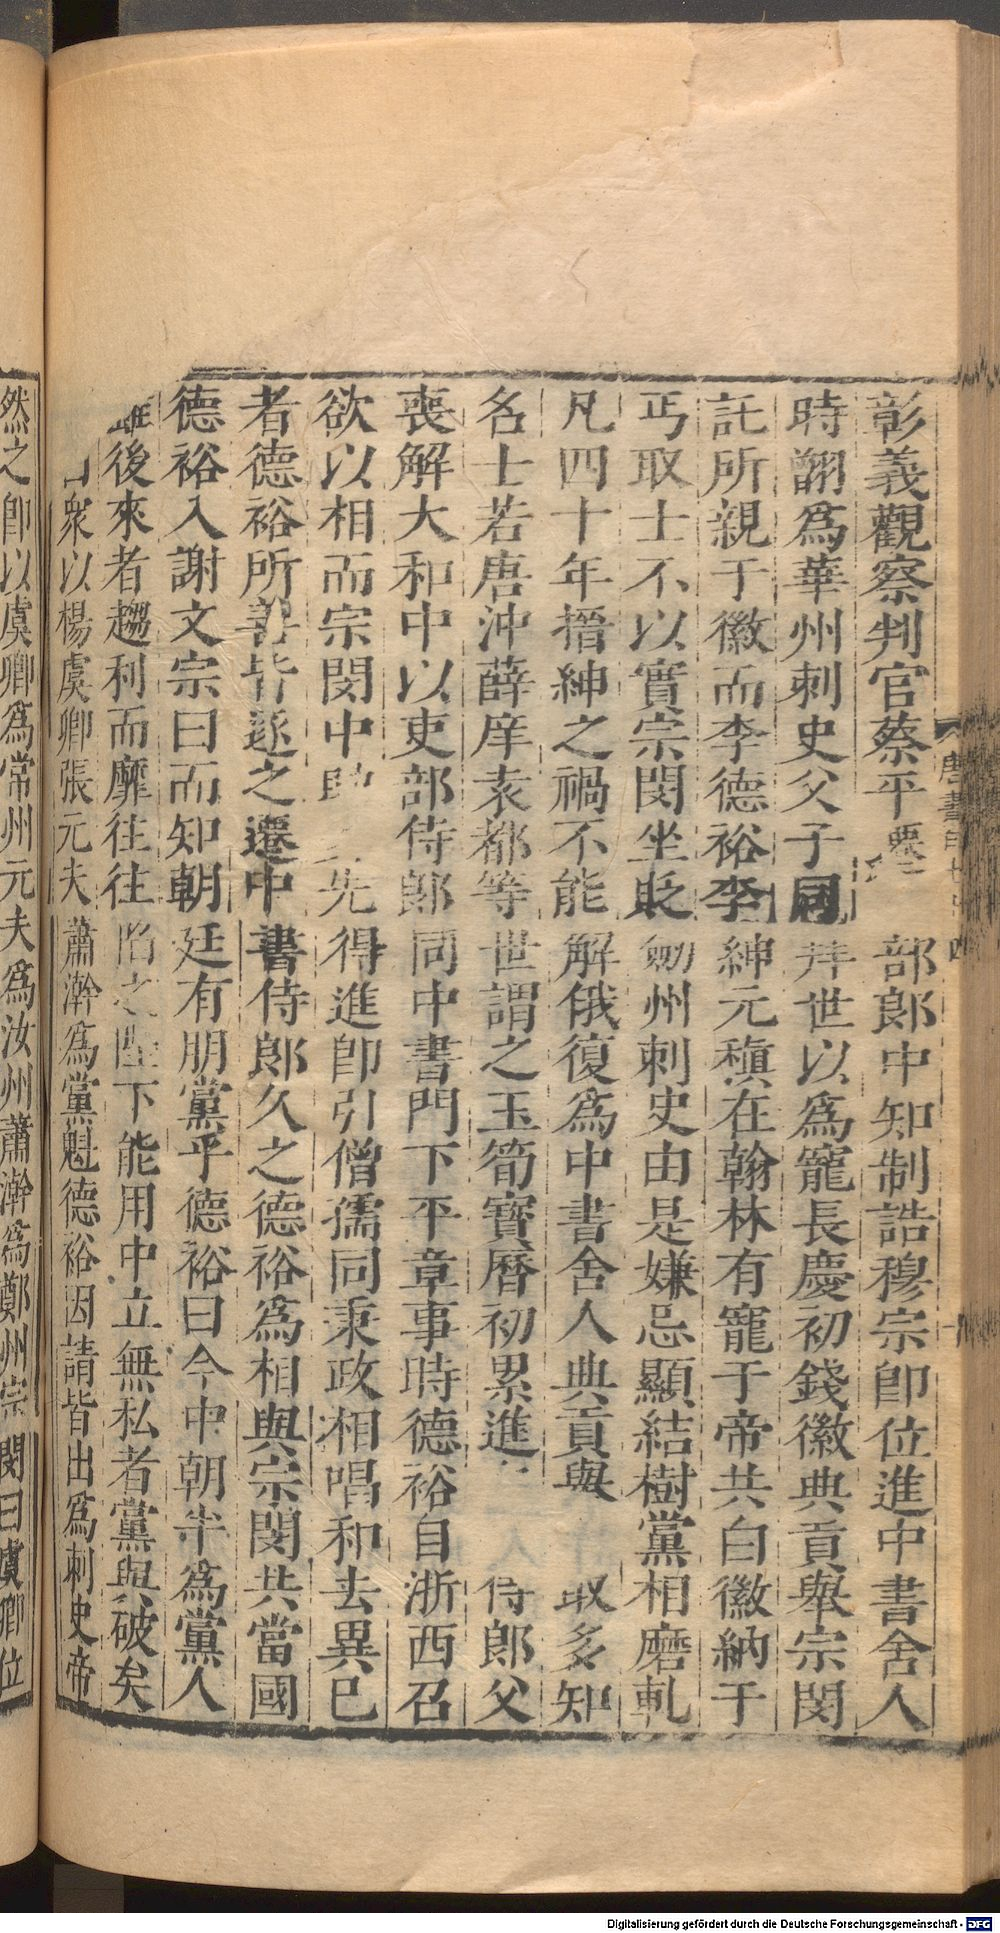 彰義觀察判官蔡平遷部郎中知制誥穆宗卽位進中書舍人
時翺爲華州刺史父子同拜世以爲寵長慶初錢徽典貢舉宗閔
託所親于徽而李德裕李紳元稹在翰林有寵于帝共白徽納于
丐取士不以實宗閔坐貶劒州刺史由是嫌忌顯結樹黨相磨軋
凡四十年搢紳之禍不能解俄復爲中書舍人典貢舉 取多知
名士若唐沖薛庠袁都等世謂之玉筍寶曆初累進 侍郎父
喪解大和中以吏部侍郎同中書門下平章事時德裕自浙西召
欲以相而宗閔中助 先得進卽引僧孺同秉政相唱和去異己
者德裕所善皆逐之遷中書侍郎久之德裕爲相與宗閔共當國
德裕入謝文宗曰而知朝廷有朋黨乎德裕曰今中朝半爲黨人
雖後來者趨利而靡往往陷之陛下能用中立無私者黨與破矣
衆以楊虞卿張元夫蕭澣爲黨魁德裕因請皆出爲刺史帝
然之卽以虞卿爲常州元夫爲汝州蕭澣爲鄭州宗閔曰虞卿位
唐書
四
Digitalisierung gefördert durch die Deutsche Forschungsgemeinschaft - DFG